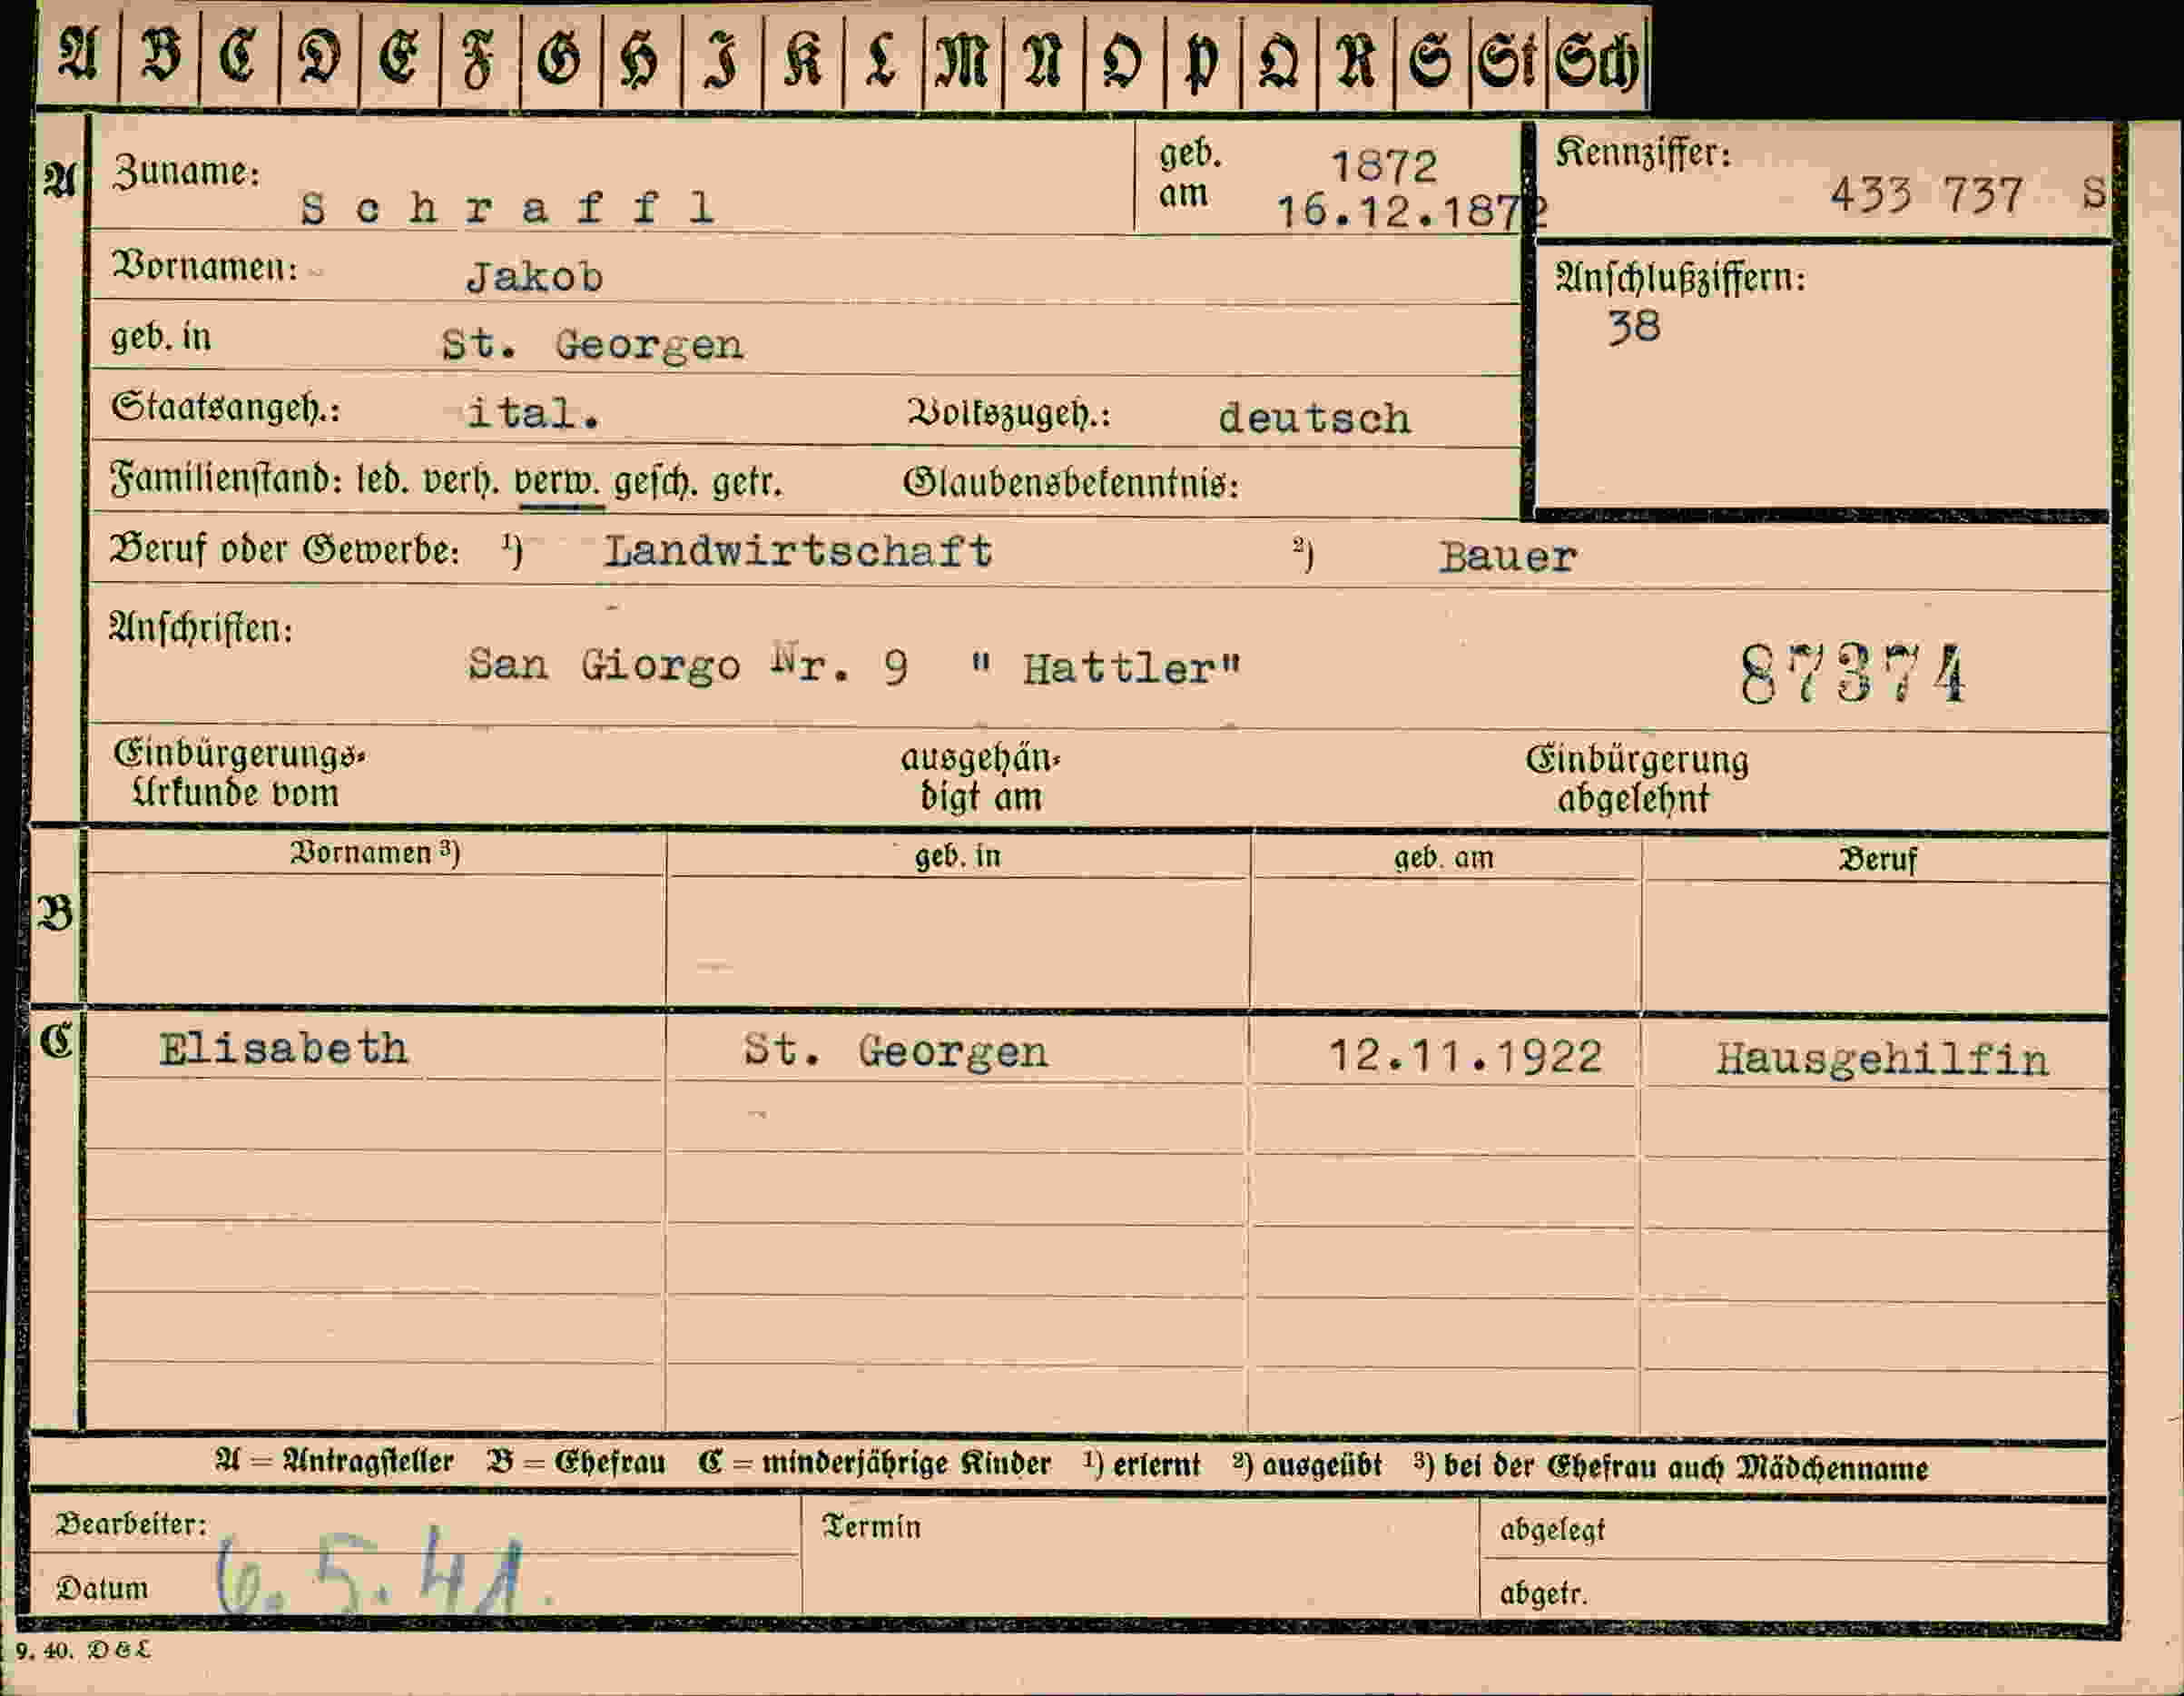 A B C D E F G H I K L M N O P Q R S St Sch
A
Zuname: Schraffl
geb. am 1872
16.12.1872
Kennziffer: 433 737 S
Vornamen: Jakob
Anschlußziffern:
38
geb. in St. Georgen
Staatsangeh.: ital. Volkszugeh.: deutsch
Familienstand: led. verh. verw. gesch. getr. Glaubensbekenntnis:
Beruf oder Gewerbe: ¹) Landwirtschaft ²) Bauer
Anschriften:
San Giorgo Nr. 9 " Hattler" 87374
Einbürgerungs-Urkunde vom
ausgehän-digt am
Einbürgerung abgelehnt
B
Vornamen ³) geb. in geb. am Beruf
C
Elisabeth St. Georgen 12.11.1922 Hausgehilfin
A = Antragsteller B = Ehefrau C = minderjährige Kinder ¹) erlernt ²) ausgeübt ³) bei der Ehefrau auch Mädchenname
Bearbeiter: Termin abgelegt
Datum 6.5.41. abgetr.
9. 40. D & L